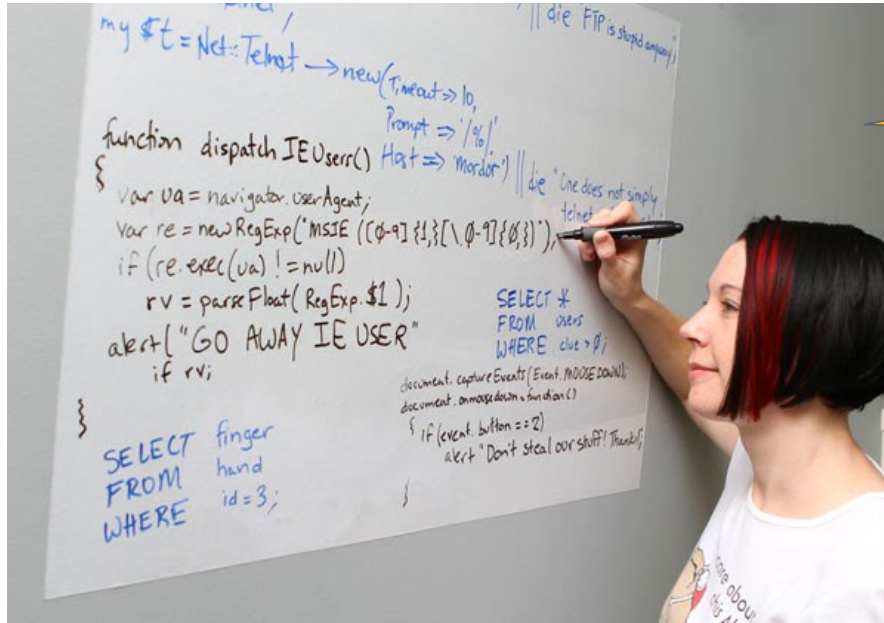 || die "FTP is stupid anyway";
my $t = Net::Telnet → new(Timeout => 10,
Prompt => '/%/'
Host => 'mordor') || die "One does not simply
telnet
function dispatch IEUserr()
{
var ua = navigator.userAgent;
var re = new RegExp("MSIE ([0-9]{1,}[\.0-9]{0,})");
if (re.exec(ua) != null)
rv = parseFloat( RegExp.$1 );
alert("GO AWAY IE USER"
if rv;
}
SELECT *
FROM users
WHERE clue > 0;
document.captureEvents(Event.MOUSEDOWN);
document.onmousedown = function()
{ if (event.button == 2)
alert "Don't steal our stuff! Thanks!";
}
SELECT finger
FROM hand
WHERE id = 3;
care about
this